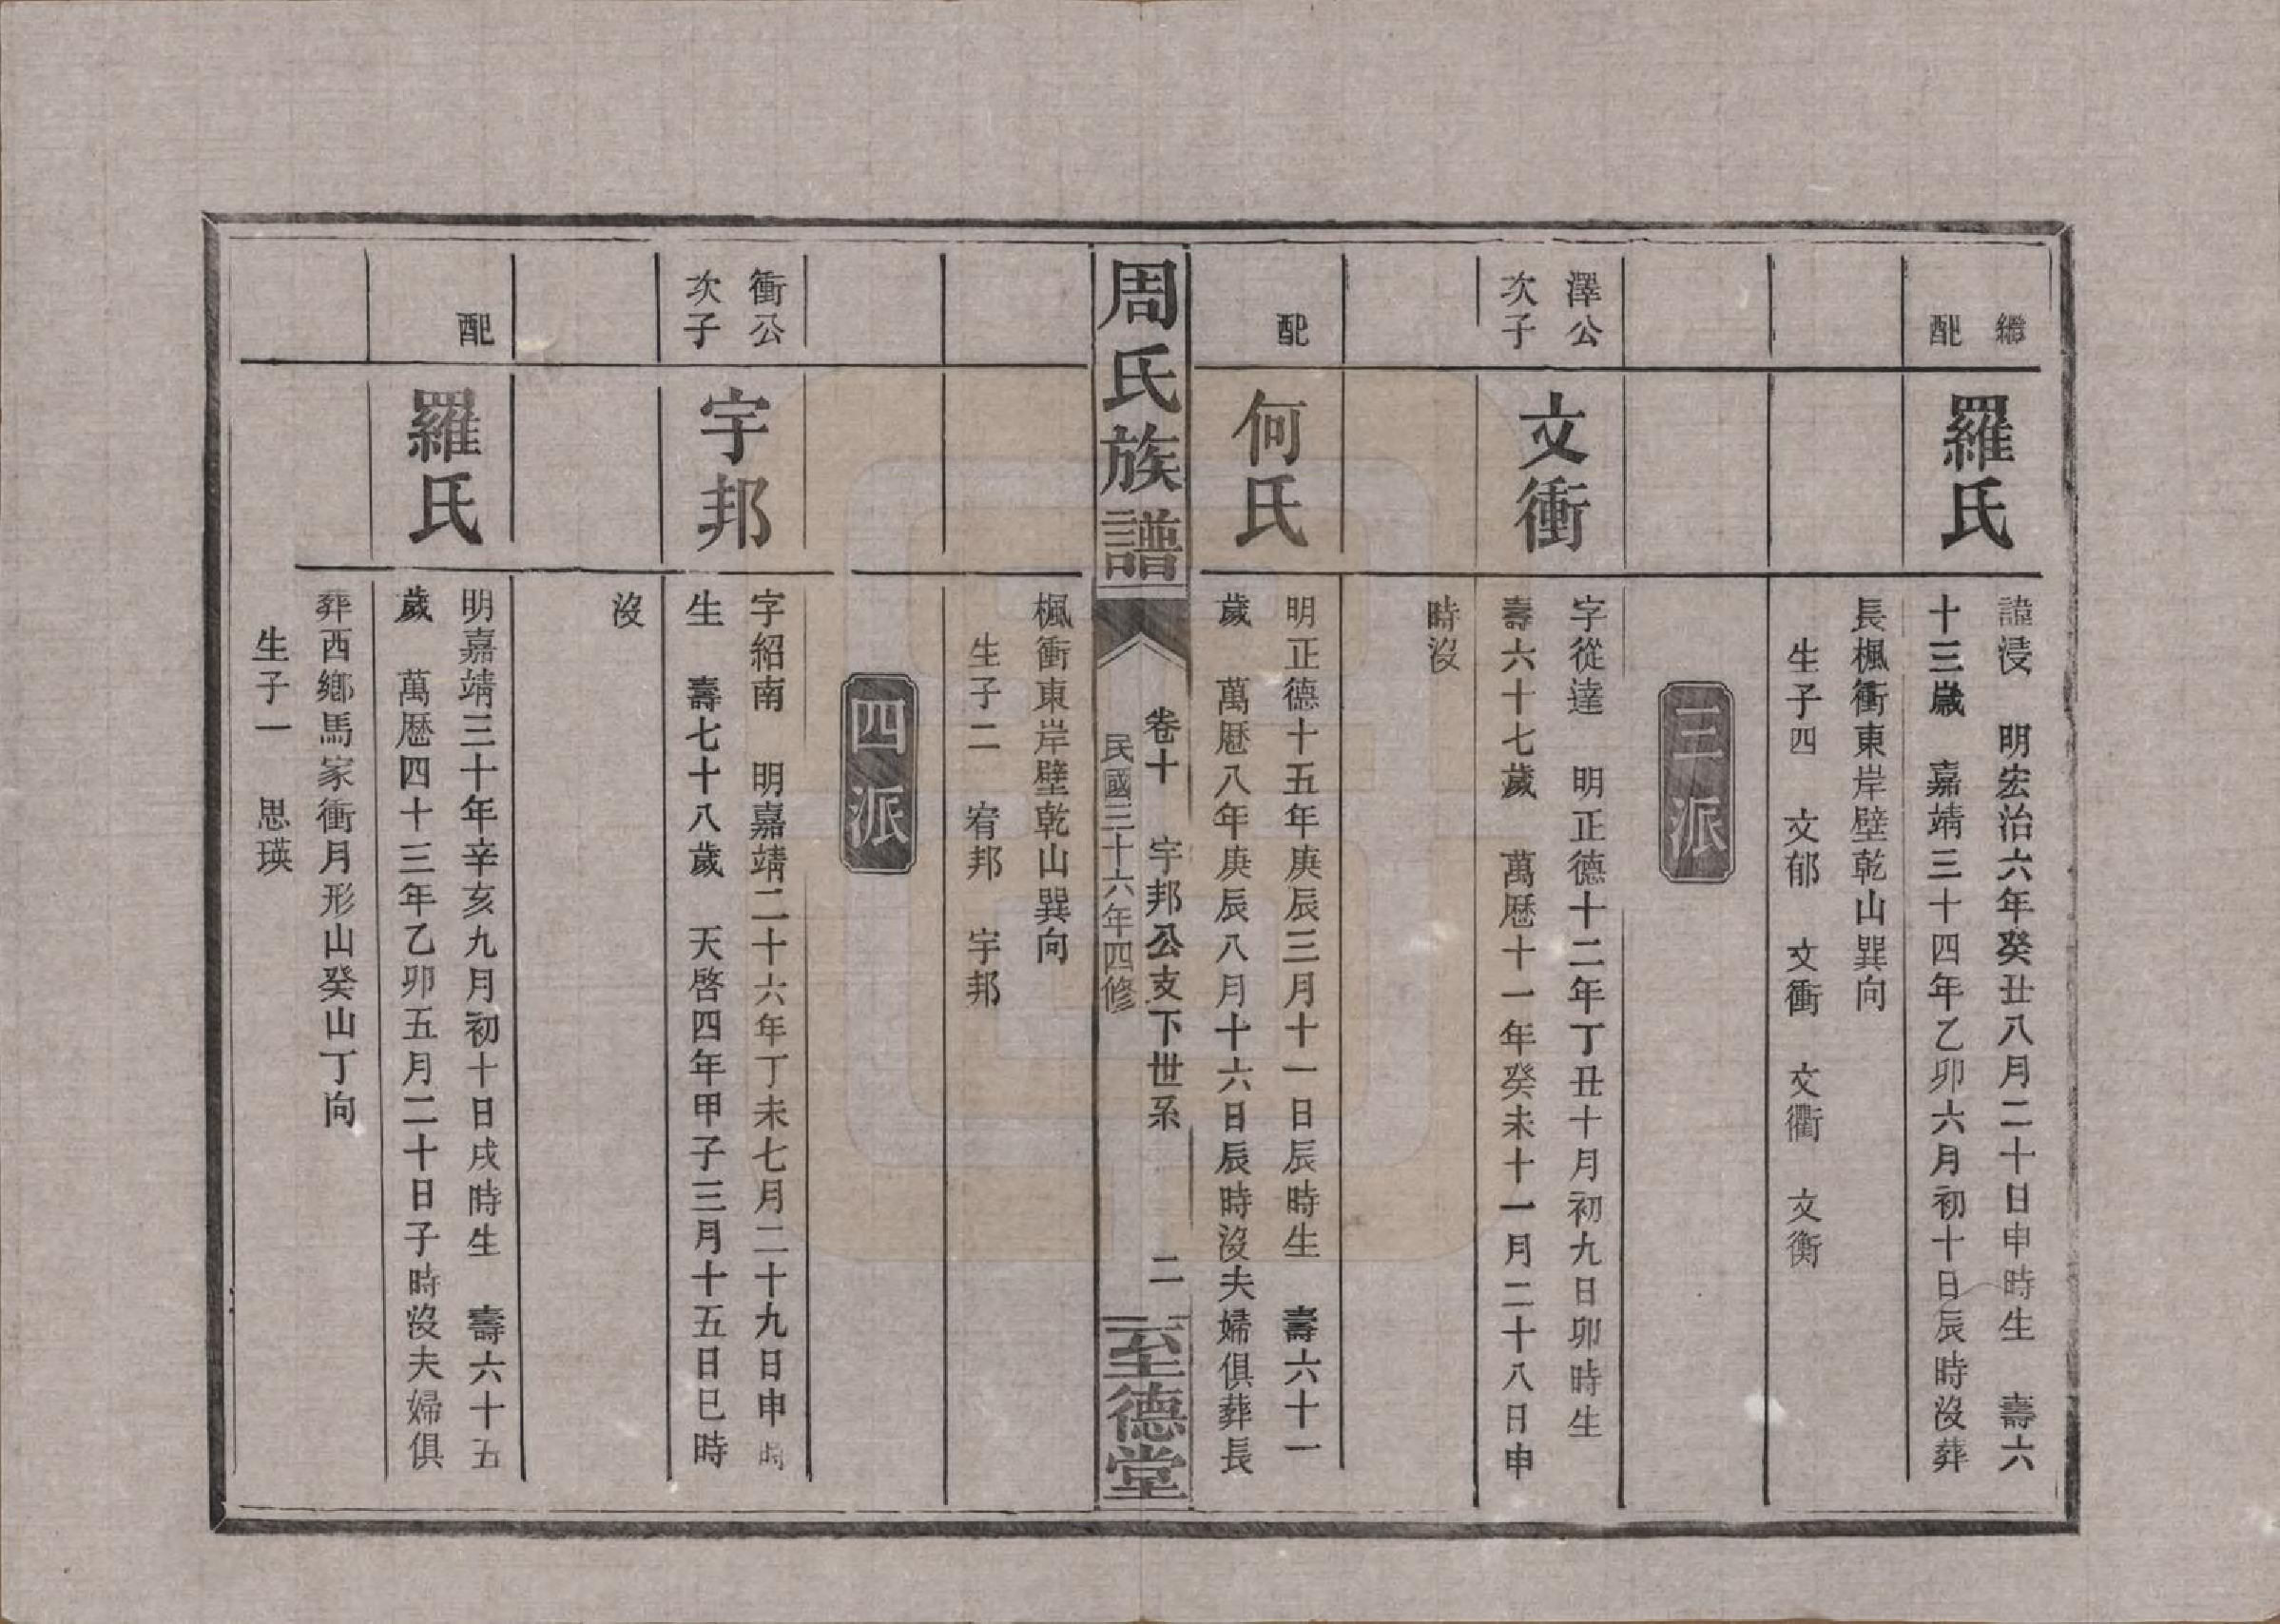 繼
配
羅氏
諱浸　明宏治六年癸丑八月二十日申時生　壽六
十三歲　嘉靖三十四年乙卯六月初十日辰時沒葬
長楓衝東岸壁乾山巽向
生子四　文郁　文衝　文衢　文衡
三派
澤公
次子
文衝
字從達　明正德十二年丁丑十月初九日卯時生
壽六十七歲　萬歷十一年癸未十一月二十八日申
時沒
配
何氏
明正德十五年庚辰三月十一日辰時生　壽六十一
歲　萬歷八年庚辰八月十六日辰時沒夫婦俱葬長
周氏族譜
卷十　宇邦公支下世系　二
民國三十六年四修
至德堂
楓衝東岸壁乾山巽向
生子二　宥邦　宇邦
四派
衝公
次子
宇邦
字紹南　明嘉靖二十六年丁未七月二十九日申時
生　壽七十八歲　天啓四年甲子三月十五日巳時
沒
配
羅氏
明嘉靖三十年辛亥九月初十日戌時生　壽六十五
歲　萬歷四十三年乙卯五月二十日子時沒夫婦俱
葬西鄉馬家衝月形山癸山丁向
生子一　思瑛